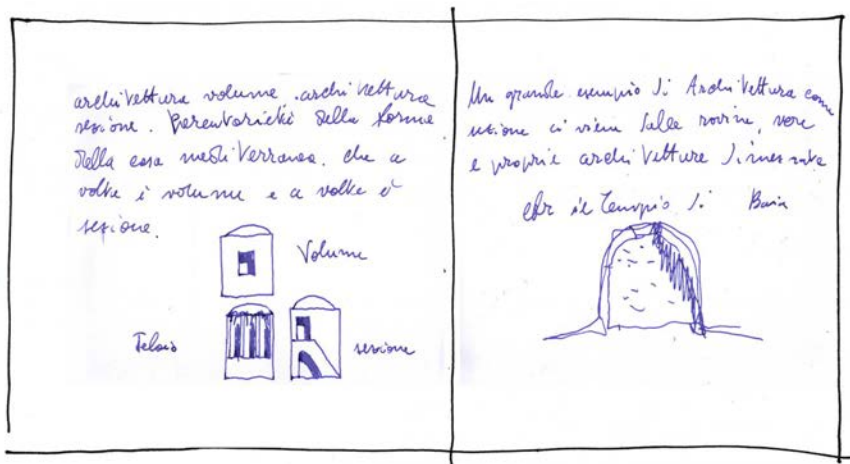 architettura volume. architettura
sezione. Parentarietà della forma
della casa mediterranea. che a
volte è volume e a volte è
sezione.
Volume
Telaio
sezione
Un grande esempio di Architettura come
sezione ci viene dalle rovine, vere
e proprie architetture
cfr il Tempio di Baia